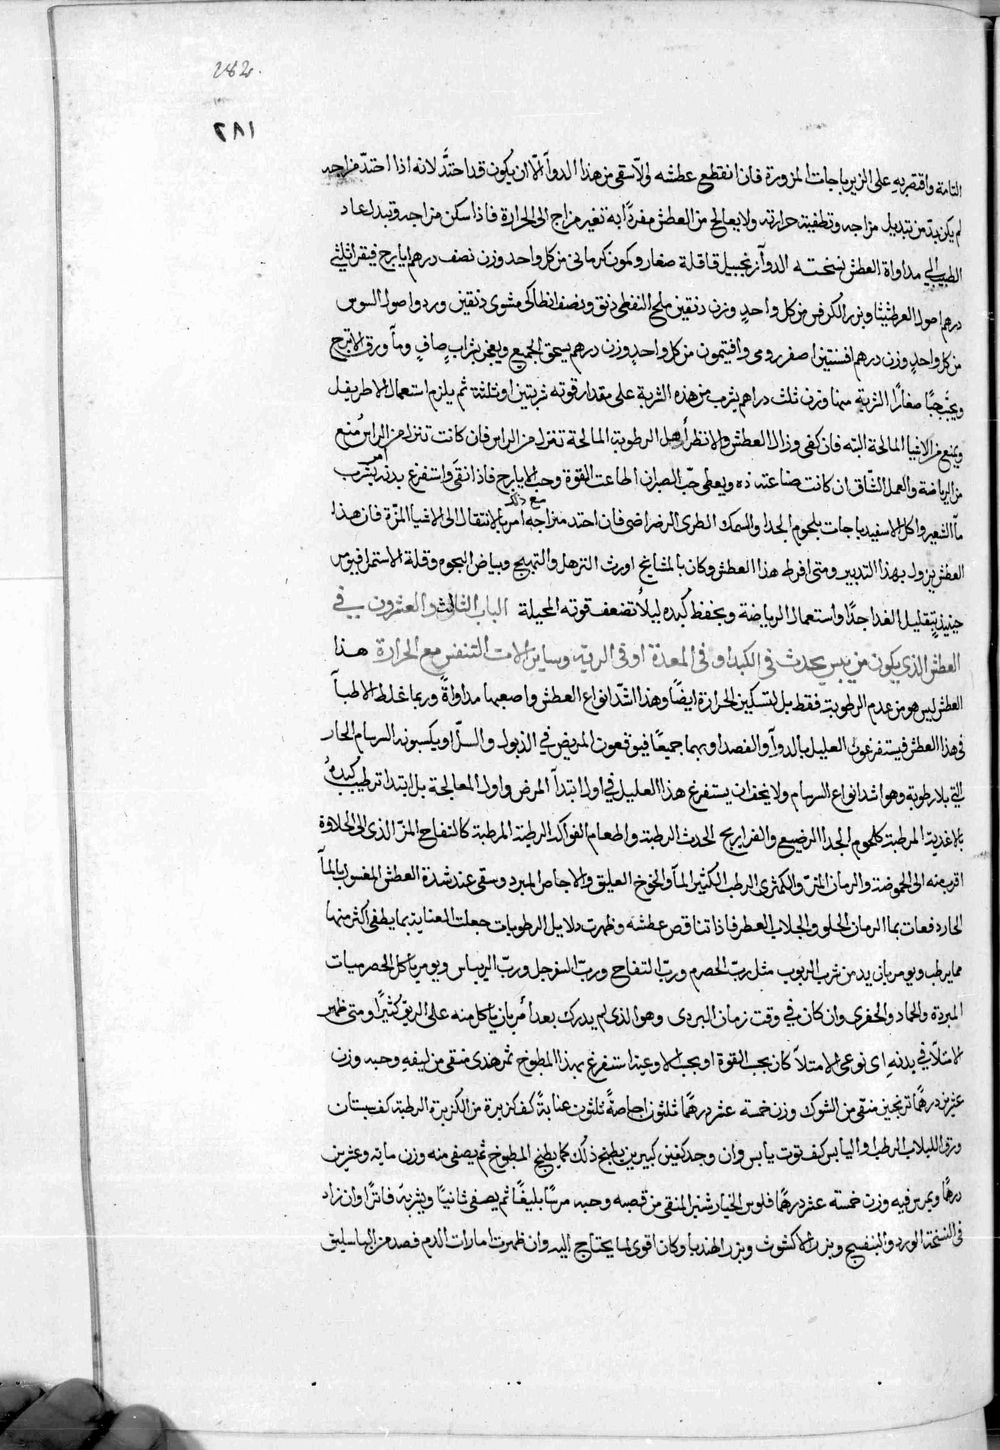 282.
٢٨١
التامة واقتصر به على الزيرباجات المزورة فان انقطع عطشه ولا سقى من هذا الدوآ الا ان يكون قد احتد لانه اذا احتد مزاجه
لم يكن بد من تبديل مزاجه وتطفية حرارته ولا يعالج من العطش مفردا به تغير مزاج الى الحرارة فاذا سكن مزاجه وتبدل عاد
الطبيب الى مداواة العطش نسخته الدوآ زنجبيل قاقلة صغار وكمون كرمانى من كل واحد وزن نصف درهم ايارج فيقرا ثلثي
درهم اصول العرطنيثا وبزر الكرفس من كل واحد وزن دنقين ملح النفطى دنق ونصف انطاكى مشوى دنقين ورد واصول السوس
من كل واحد وزن درهم افسنتين اصفر رومى وافتيمون من كل واحد وزن درهم يسحق الجميع ويعجن بشراب صاف وما ورق الاترج
ويحبب حبا صغارا الشربة منها وزن ثلث دراهم يشرب من هذه الشربة على مقدار قوته شربتين او ثلثة ثم يلزم استعمال الاطريفل
ويمنع من الاشيا المالحة البته فان كفى وزال العطش والا نظر هل الرطوبة المالحة تنزل من الراس فان كانت تنزل من الراس مُنع
من الرياضة والعمل الشاق ان كانت صناعته ذه ويعطى حب الصبر ان اطاعت القوة وحب الايارج فاذا نقى واستفرغ بدنه امر بشرب
مآ الشعير واكل الاسفيدباجات بلحوم الجدا والسمك الطرى الرضراضى فان احتد مزاجه مع ذلك امر بالانتقال الى الاشيا المزة فان هذا
العطش يزول بهذا التدبير ومتى افرط هذا العطش وكان بالمشايخ اورث الترهل والتهيج وبياض الوجوه وقلة الاستمرا فيومر
حينيذ بتقليل الغدا جدا واستعمال الرياضة ويحفظ كبده ليلا تضعف قوته المحيلة الباب الثالث والعشرون في
العطش الذي يكون من يبس يحدث في الكبد او فى المعدة او فى الريه وساير الات التنفس مع الحرارة هذا
العطش ليس هو من عدم الرطوبة فقط بل لتسكين الحرارة ايضا وهذا اشد انواع العطش واصعبها مداواةً وربما غلط الاطبآ
فى هذا العطش فيستفرغون العليل بالدوآ والفصد او بهما جميعًا فيوقعون المريض في الذبول والسل او يكسبونه السرسام الحار
التي بلا رطوبة وهو اشد انواع السرسام ولا يجب ان يستفرغ هذا العليل في اول ابتدآ المرض واول المعالجة بل ابتدا ترطيب كبده
بالاغدية المرطبة كلحوم الجدا الرضيع والفراريج الحدث الرطبة والطعام الفواكه الرطبة المرطبة كالتفاح المز الذى الى الحلاوة
اقرب منه الى الحموضة والرمان المز والكمثرى الرطب الكثير المآ والخوخ العليق والاجاص المبرد وسقى عند شدة العطش المغسول بالمآ
الحار دفعات بما الرمان الحلو والجلاب العطر فاذا تناقص عطشه وظهرت دلايل الرطوبات جعلت العناية بما يطفى اكثر منها
مما يرطب ويومر بان يدمن شرب الربوب مثل ربّ الحصرم وربّ التفاح وربّ السفرجل وربّ الريباس ويومر باكل الحصرميات
المبردة والجماد والجفرى وان كان في وقت زمان البردى وهو الذى لم يدرك بعد أمر بان ياكل منه على الريق كثيرًا ومتى ظهر
الامتلآ في بدنه اى نوعى الامتلآ كان بحب القوة او بحب الاوعية استفرغ بهذا المطبوخ تمر هندى منقى من ليفه وحبه وزن
عشرين درهمًا ترنجبين منقى من الشوك وزن خمسة عشر درهمًا ثلثون اجاصةً ثلثون عنابةً كف كزبرة من الكزبرة الرطبة كف بستان
ورق اللبلاب الرطب او اليابس كف توت يابس وان وجد كفين كبيرين يطبخ ذلك كما يطبخ المطبوخ ثم يصفى منه وزن مايه وعشرين
درهمًا ويمرس فيه وزن خمسة عشر درهمًا فلوس الخيار شنبر المنقى من قصبه وحبه مرسًا بليغًا ثم يصفى ثانيًا ويشربه فاترًا وان زاد
فى النسخة الورد والبنفسج وبزر الاكشوث وبزر الهندبا وكان اقوى لما يحتاج اليه وان ظهرت امارات الدم فصد من الباسليق